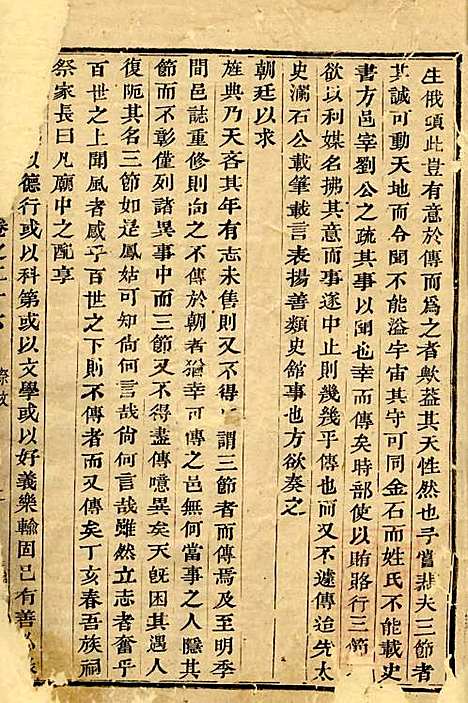 生俄頃此豈有意於傳而爲之者歟蓋其天性然也予嘗悲夫三節者
其誠可動天地而令聞不能溢宇宙其守可同金石而姓氏不能載史
書方邑宰劉公之疏其事以聞也幸而傳矣時部使以賄賂行三節
欲以利媒名拂其意而事遂中止則幾幾乎傳而又不遽傳迨先太
史滿石公載筆載言表揚善類史館事也方欲奏之
朝廷以求
旌典乃天吝其年有志未售則又不得 謂三節者而傳焉及至明季
間邑誌重修則向之不傳於朝者猶幸可傳之邑無何當事之人隱其
節而不彰僅列諸異事中而三節又不得盡傳噫異矣天旣困其遇人
復阨其名三節如是鳳姑可知尚何言哉尚何言哉雖然立志者奮乎
百世之上聞風者感乎百世之下則不傳者而又傳矣丁亥春吾族祠
祭家長曰凡廟中之配享
以德行或以科第或以文學或以好義樂輸固已有善
卷之二十六 祭文